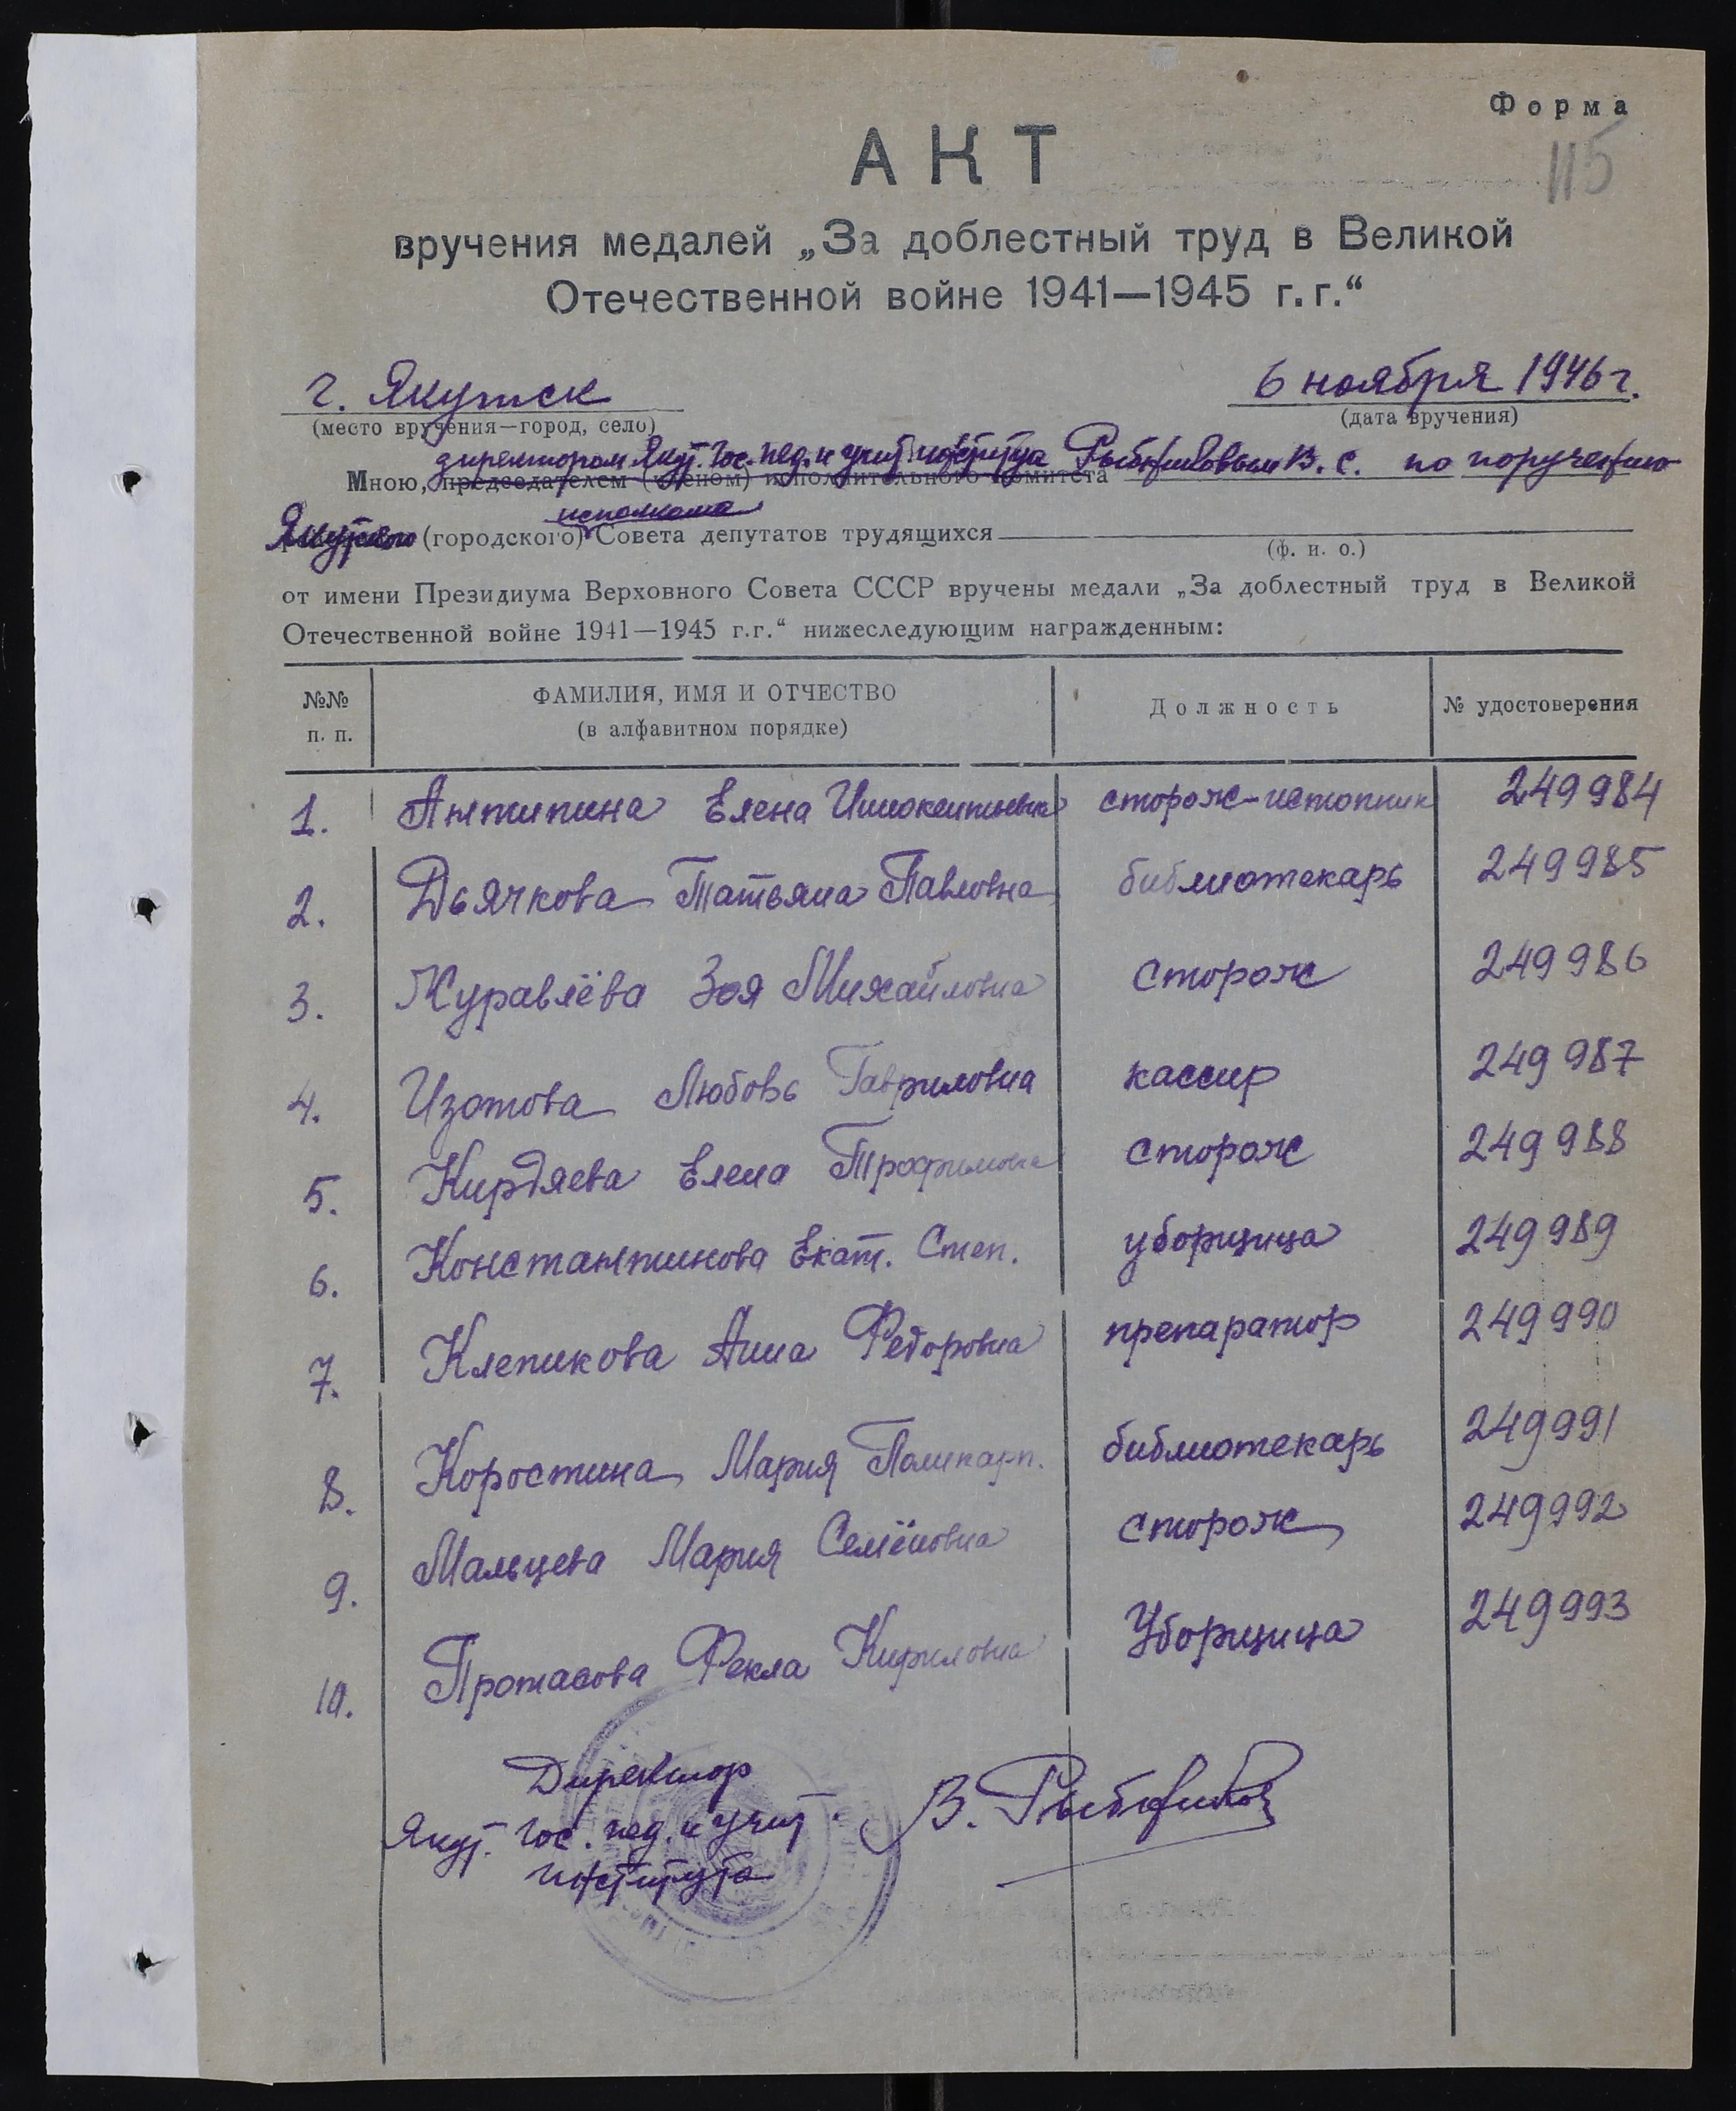 Форма
115
АКТ
вручения медалей „За доблестный труд в Великой
Отечественной войне 1941—1945 г.г.“
г. Якутск 6 ноября 1946 г.
(место вручения—город, село) (дата вручения)
директором Якут. Гос. пед. и учит. института Рыбниковым В. С. по поручению
Мною, председателем (членом) исполнительного комитета
исполкома
Якутского (городского) Совета депутатов трудящихся
(ф. и. о.)
от имени Президиума Верховного Совета СССР вручены медали „За доблестный труд в Великой
Отечественной войне 1941—1945 г.г.“ нижеследующим награжденным:
№№ п. п. ФАМИЛИЯ, ИМЯ И ОТЧЕСТВО (в алфавитном порядке) Должность № удостоверения
1. Антипина Елена Иннокентьевна сторож-истопник 249984
2. Дьячкова Татьяна Павловна библиотекарь 249985
3. Журавлёва Зоя Михайловна сторож 249986
4. Изотова Любовь Гавриловна кассир 249987
5. Кирдяева Елена Трофимовна сторож 249988
6. Константинова Екат. Степ. уборщица 249989
7. Клепикова Анна Федоровна препаратор 249990
8. Коростина Мария Поликарп. библиотекарь 249991
9. Мальцева Мария Семёновна сторож 249992
10. Протасова Фекла Кириловна Уборщица 249993
Директор
Якут. Гос. пед. и учит.
института
В. Рыбников